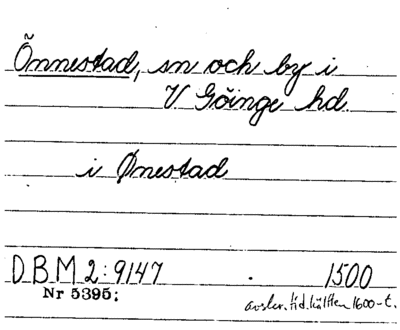 Önnestad, sn och by i
V Göinge hd.
i Ønestad
DBM 2:9147 . 1500
Nr 5395; avskr. tid. hälften 1600-t.